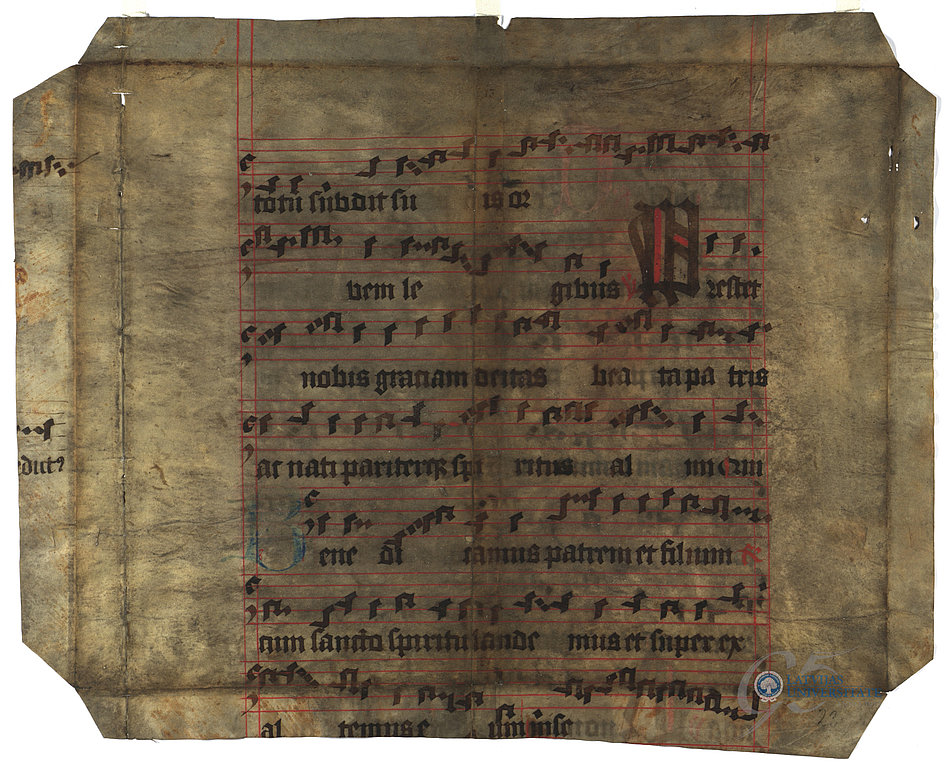 totū subdit su is or
bem le gibus P restet
nobis gratiam deitas bea ta pa tris
ac nati pariterqꝫ spi ritus al mi
Bene di camus patrem et filium
cum sancto spiritu laude mus et super ex
al temus e um in se
LATVIJAS
UNIVERSITĀTE